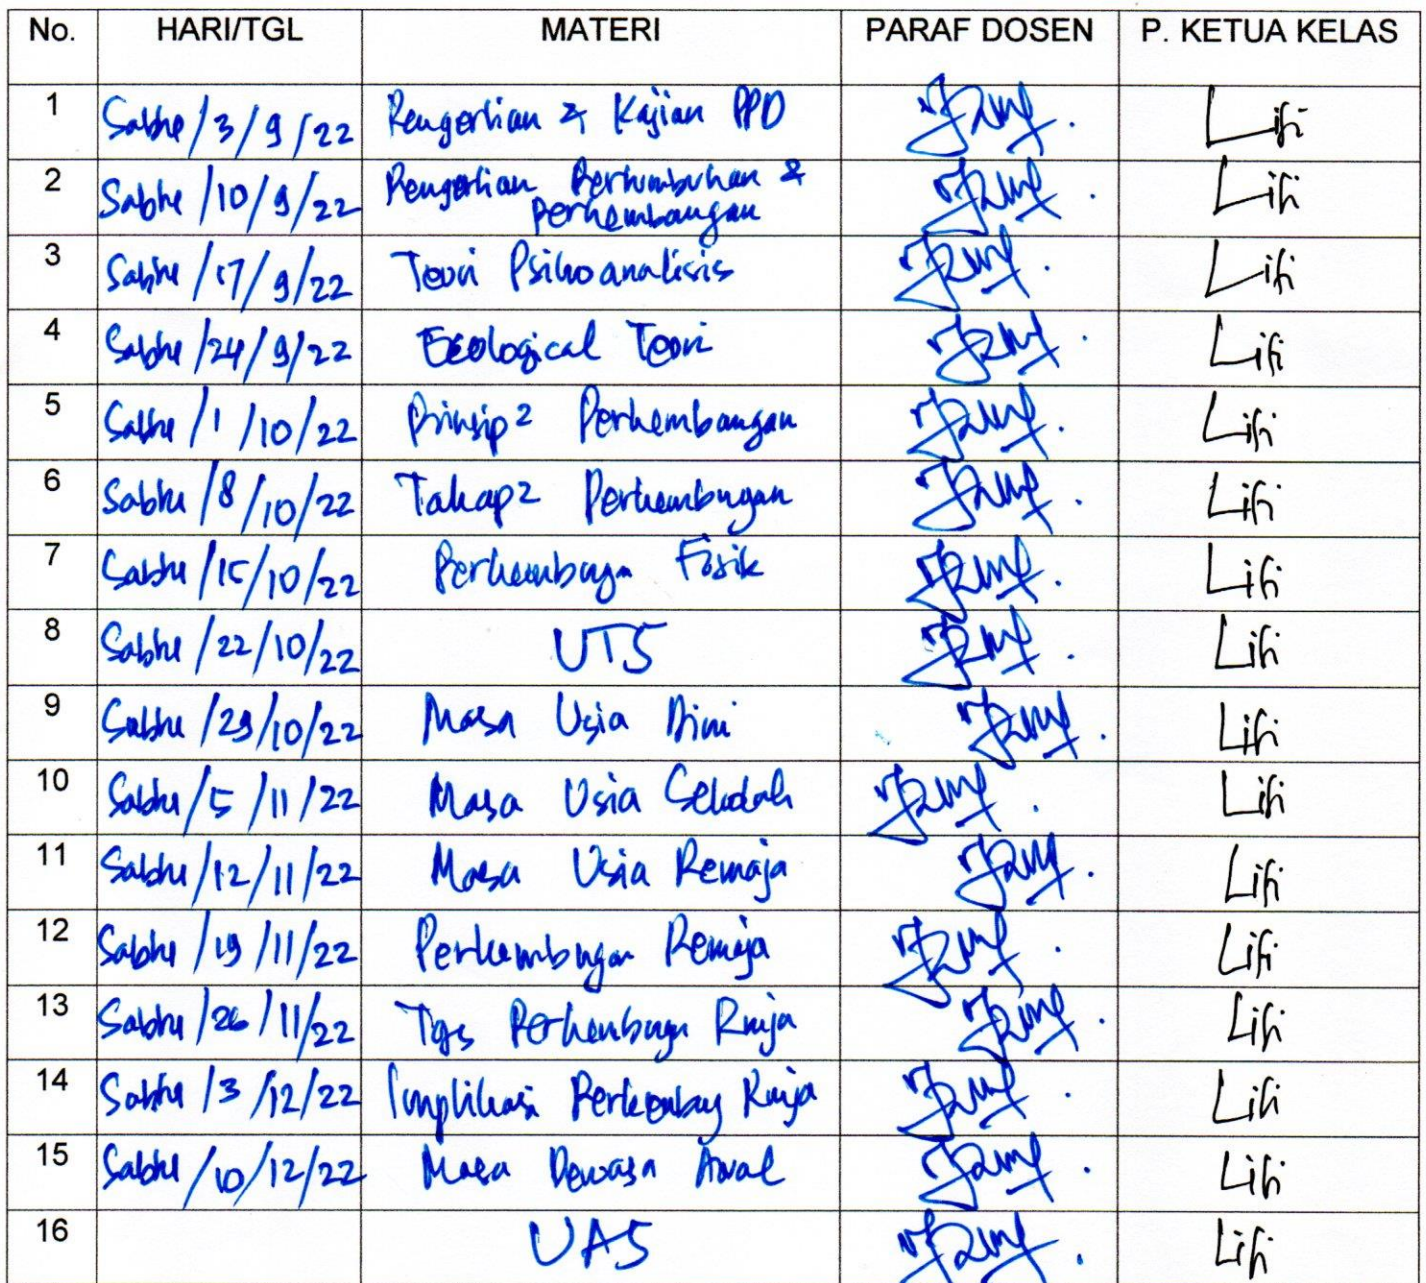 No. HARI/TGL MATERI PARAF DOSEN P. KETUA KELAS
1 Sabtu/3/9/22 Pengertian & Kajian PPD Lifi
2 Sabtu/10/9/22 Pengertian Pertumbuhan & Perkembangan Lifi
3 Sabtu/17/9/22 Teori Psikoanalisis Lifi
4 Sabtu/24/9/22 Ecological Teori Lifi
5 Sabtu/1/10/22 Prinsip2 Perkembangan Lifi
6 Sabtu/8/10/22 Tahap2 Perkembangan Lifi
7 Sabtu/15/10/22 Perkembangan Fisik Lifi
8 Sabtu/22/10/22 UTS Lifi
9 Sabtu/29/10/22 Masa Usia Dini Lifi
10 Sabtu/5/11/22 Masa Usia Sekolah Lifi
11 Sabtu/12/11/22 Masa Usia Remaja Lifi
12 Sabtu/19/11/22 Perkembangan Remaja Lifi
13 Sabtu/26/11/22 Tgs Perkembangan Remaja Lifi
14 Sabtu/3/12/22 Implikasi Perkembang Remaja Lifi
15 Sabtu/10/12/22 Masa Dewasa Awal Lifi
16 UAS Lifi